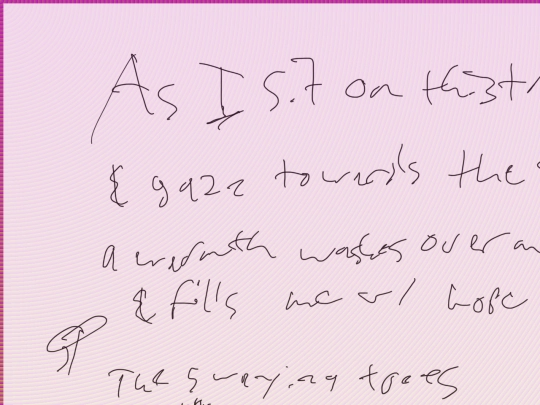 As I sit on this
& gaze towards the
a warmth washes over
& fills me w/ hope
The swaying trees